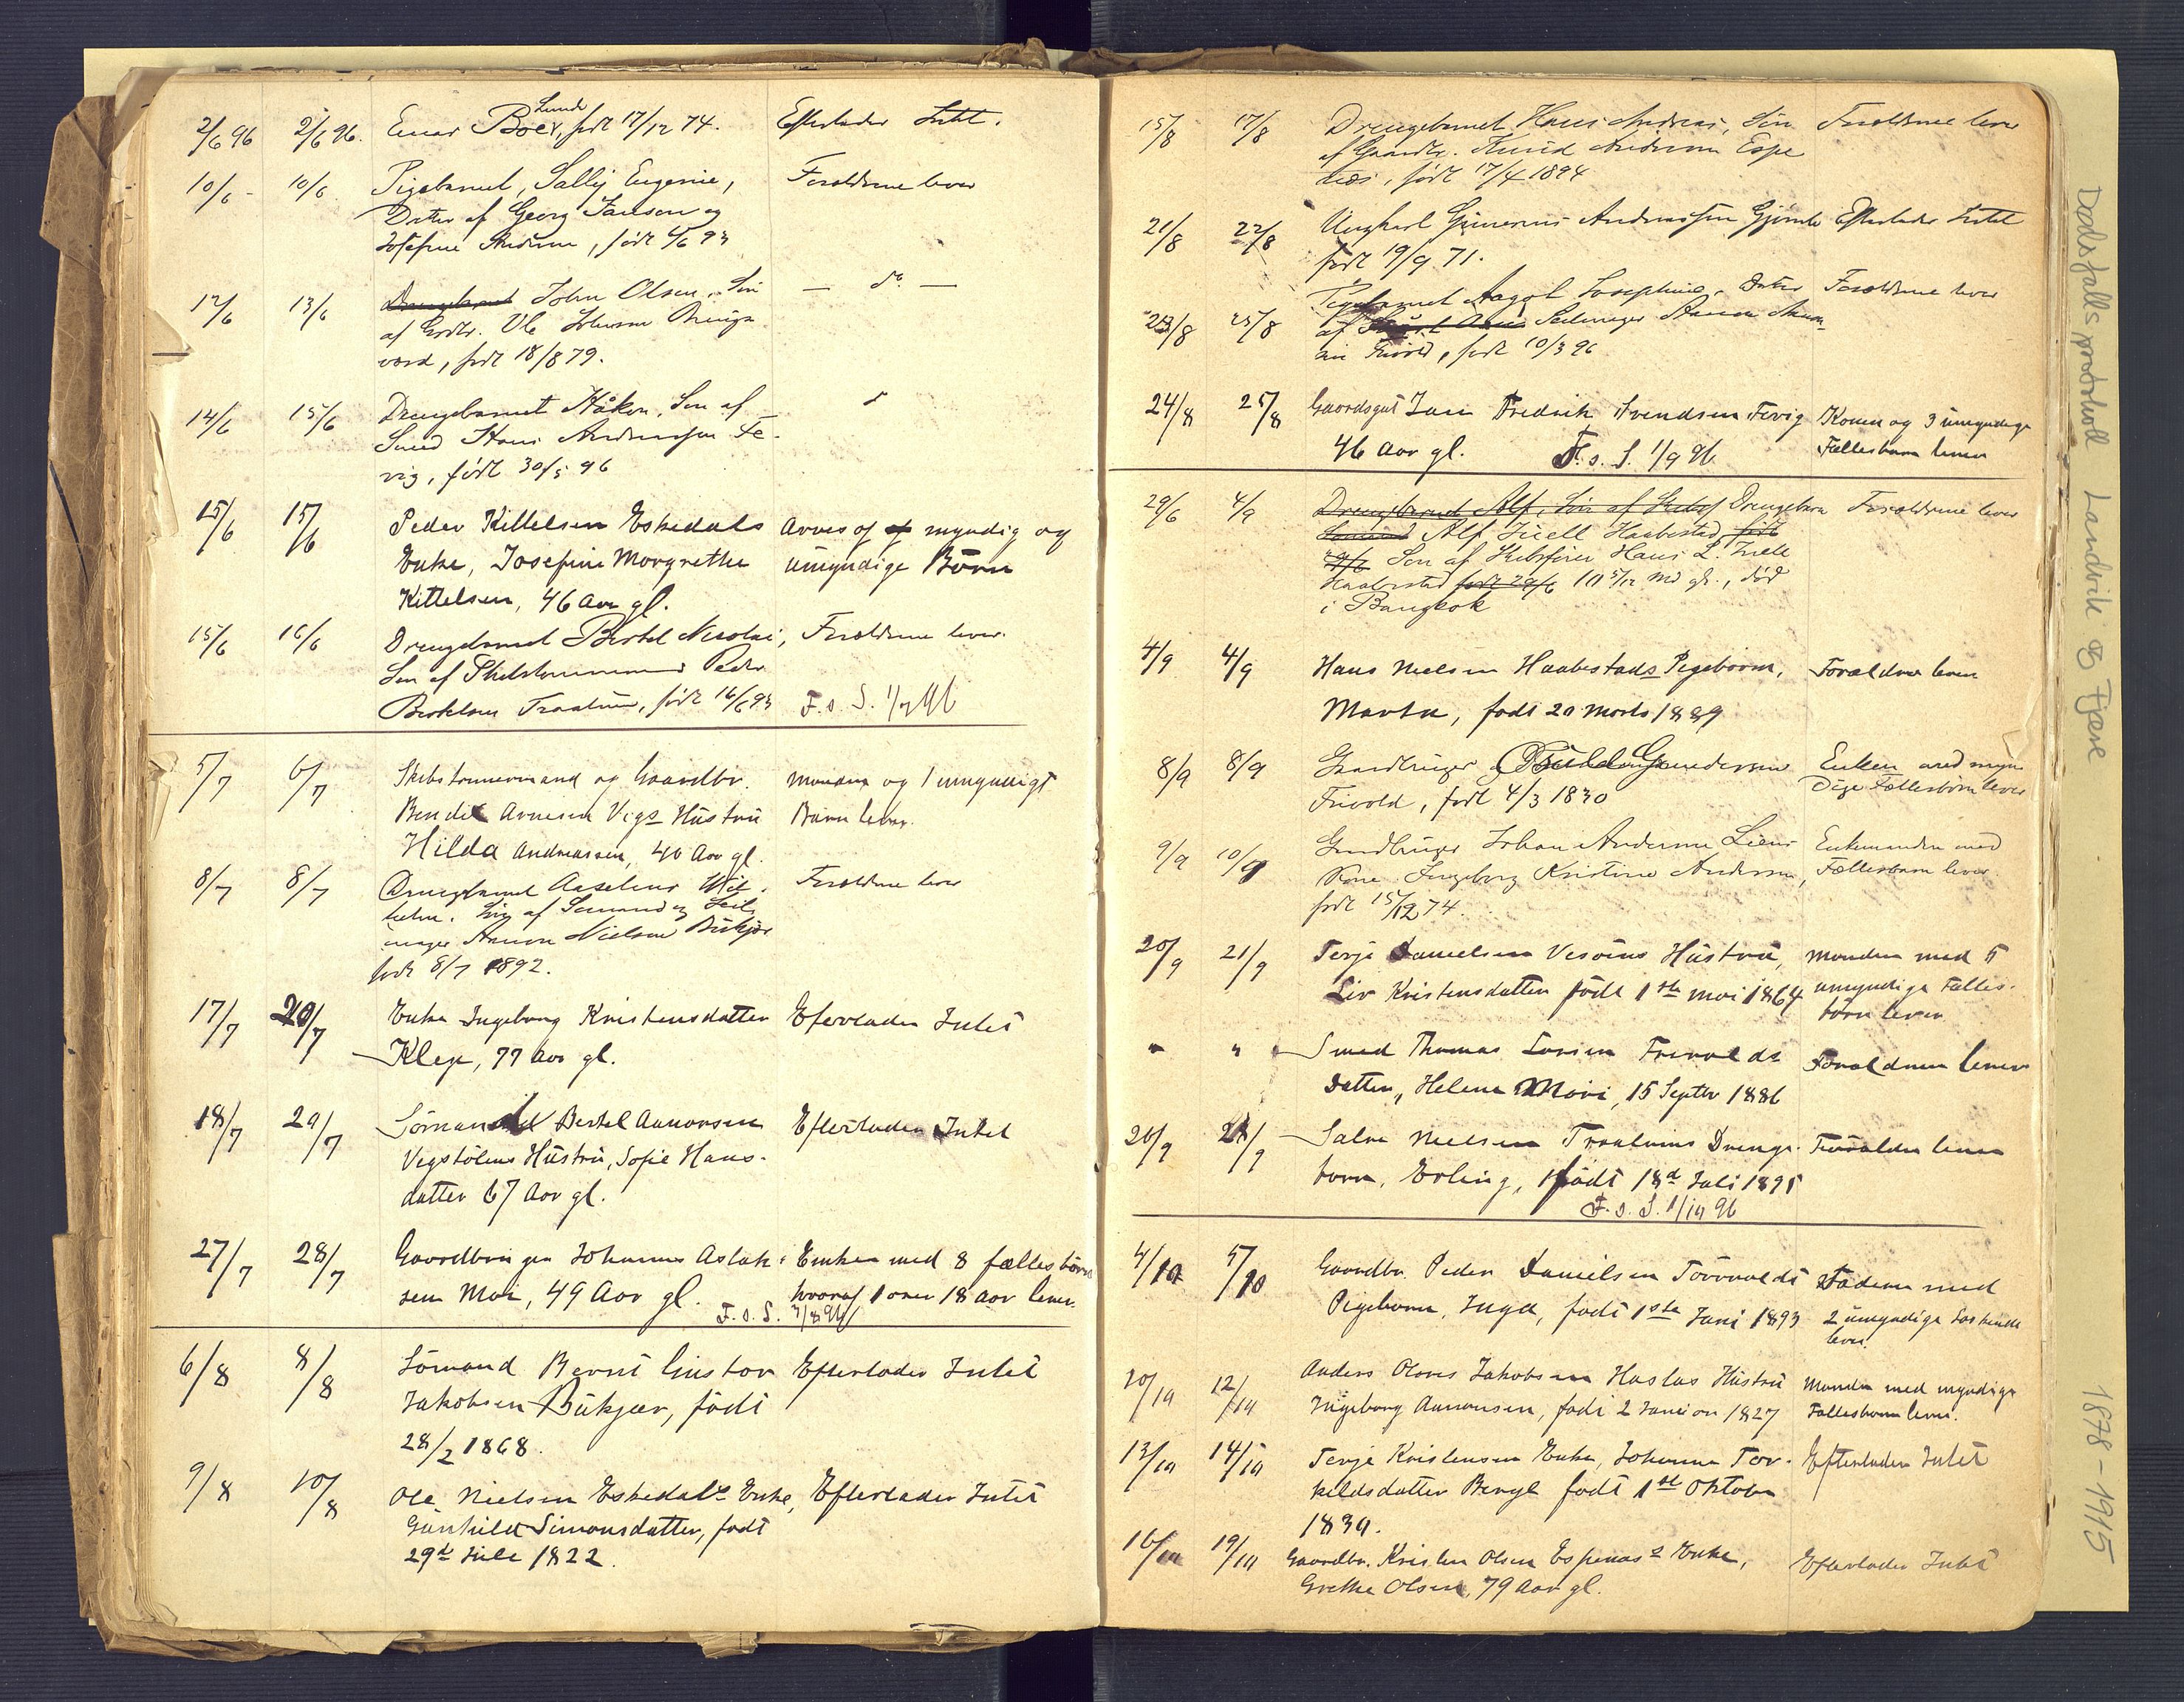 2/6 96 2/6 96. Einar Boer, født 17/12 74. Efterlader Intet.
Lunde
10/6 - 10/6 Pigebarnet, Sally Eugenie, Forældrene lever
Datter af Georg Jansen og
Josefine Andersen, født 4/6 93
12/6 13/6 Drengebarnet John Olsen, Søn — do —
af Grdbr. Ole Johnsen
vord, født 18/8 79.
14/6 15/6 Drengebarnet Håkon, Søn af do
Smed Hans Andreassen Fe-
vig, født 30/5 96
15/6 15/6 Peder Kittelsen Eskedals Arves af myndig og
Enke, Josefine Margrethe umyndige Børn
Kittelsen, 46 Aar gl.
15/6 16/6 Drengebarnet Bertel Nicolai, Forældrene lever.
Søn af Skibstømmermand Peder
Bertelsen Traalum, født 16/6 93 F. s. S. 1/7 96
5/7 6/7 Skibstømmermand og Gaardbr. Manden og 1 umyndigt
Bendik Arnesen Vigs Hustru Barn lever.
Hilda Andreassen, 40 Aar gl.
8/7 8/7 Drengebarnet Aaselius Wil- Forældrene lever
helm. Søn af Sømand og Seil-
mager Aanon Nielsen Bukjær
født 8/7 1892.
17/7 20/7 Enke Ingeborg Kristensdatter Eferlader Intet
Klep, 77 Aar gl.
18/7 20/7 Sömand Bertel Aanonsen Efterlader Intet
Vegstölens Hustru, Sofie Hans-
datter 67 Aar gl.
27/7 28/7 Gaardbruger Johannes Aslak- Enken med 8 fællesbörn
sen Moi, 49 Aar gl. hvoraf 1 over 18 Aar lever.
F. s. S. 3/8 96
6/8 8/8 Sömand Bernt Gustav Efterlader Intet
Jakobsen Bukjær, födt
28/2 1868.
9/8 10/8 Ole Nielsen Eskedals Enke, Efterlader Intet
Gunhild Simonsdatter, født
29de Juli 1822.
15/8 17/8 Drengebarnet Hans Andreas, Søn Forældrene lever
af Gaardbr. Knud Andersen Espe
næs, født 17/4 1894
21/8 22/8 Ungkarl Gunerius Andreassen Gjømle Efterlader Intet
født 19/9 71.
23/8 25/8 Pigebarnet Aagot Josephine, Datter Forældrene lever
af Seilmager Hans
Frivold, født 10/3 96
24/8 25/8 Gaardsgut Jens Fredrik Svendsen Fevig Konen og 3 umyndige
46 Aar gl. F. s. S. 1/9 96 Fællesbarn lever
29/6 4/9 Drengebarnet Alf, Søn af Skibsf Drengebarn Forældrene lever
Alf Juell Haabestad født
29/6 Søn af Skibsfører Hans L. Juell
Haabestad født 29/6 10 5/12 Md gl., død
i Bangkok
4/9 4/9 Hans Nielsen Haabestads Pigebarn, Forældrene lever
Marta, født 20 Marts 1889
8/9 8/9 Gaardbruger Gundersen Enken med myn-
Frivold, født 4/3 1830 dige Fællesbørn lever
9/9 10/9 Gaardbruger Johan Andersen Liens Enkemanden med
Kone Ingeborg Kristine Andersen, Fællesbarn lever.
født 15/12 74.
20/9 21/9 Terje Danielsen Vesöens Hustru, Manden med 5
Liv Kristensdatter födt 1ste Mai 1864 umyndige Fælles-
börn lever
" " Smed Thomas Larsen Frivolds Forældrene lever
Datter, Helene Marie, 15 Septbr 1886
20/9 21/9 Salve Nielsen Traalums Drenge- Forældrene lever
barn, Erling, födt 18de Juli 1895
F. s. S. 1/10 96
4/10 5/10 Gaardbr. Peder Danielsen Törvolds Faderen med
Pigebarn, Inga, födt 1ste Juni 1893 2 umyndige Søskende
lever.
10/10 12/10 Anders Olaves Jakobsen Haslas Hustru Manden med myndige
Ingeborg Aanonsen, födt 2 Januar 1827 Fællesbarn lever.
13/10 14/10 Terje Kristensen Enke, Johanne Tor- Efterlader Intet
kildsdatter födt 1ste Oktober
1830.
16/10 19/10 Gaardbr. Kristen Olsen Espenæs's Enke, Efterlader Intet
Grethe Olsen, 79 Aar gl.
Dødsfallsprotokoll Landvik og Fjære 1878-1915